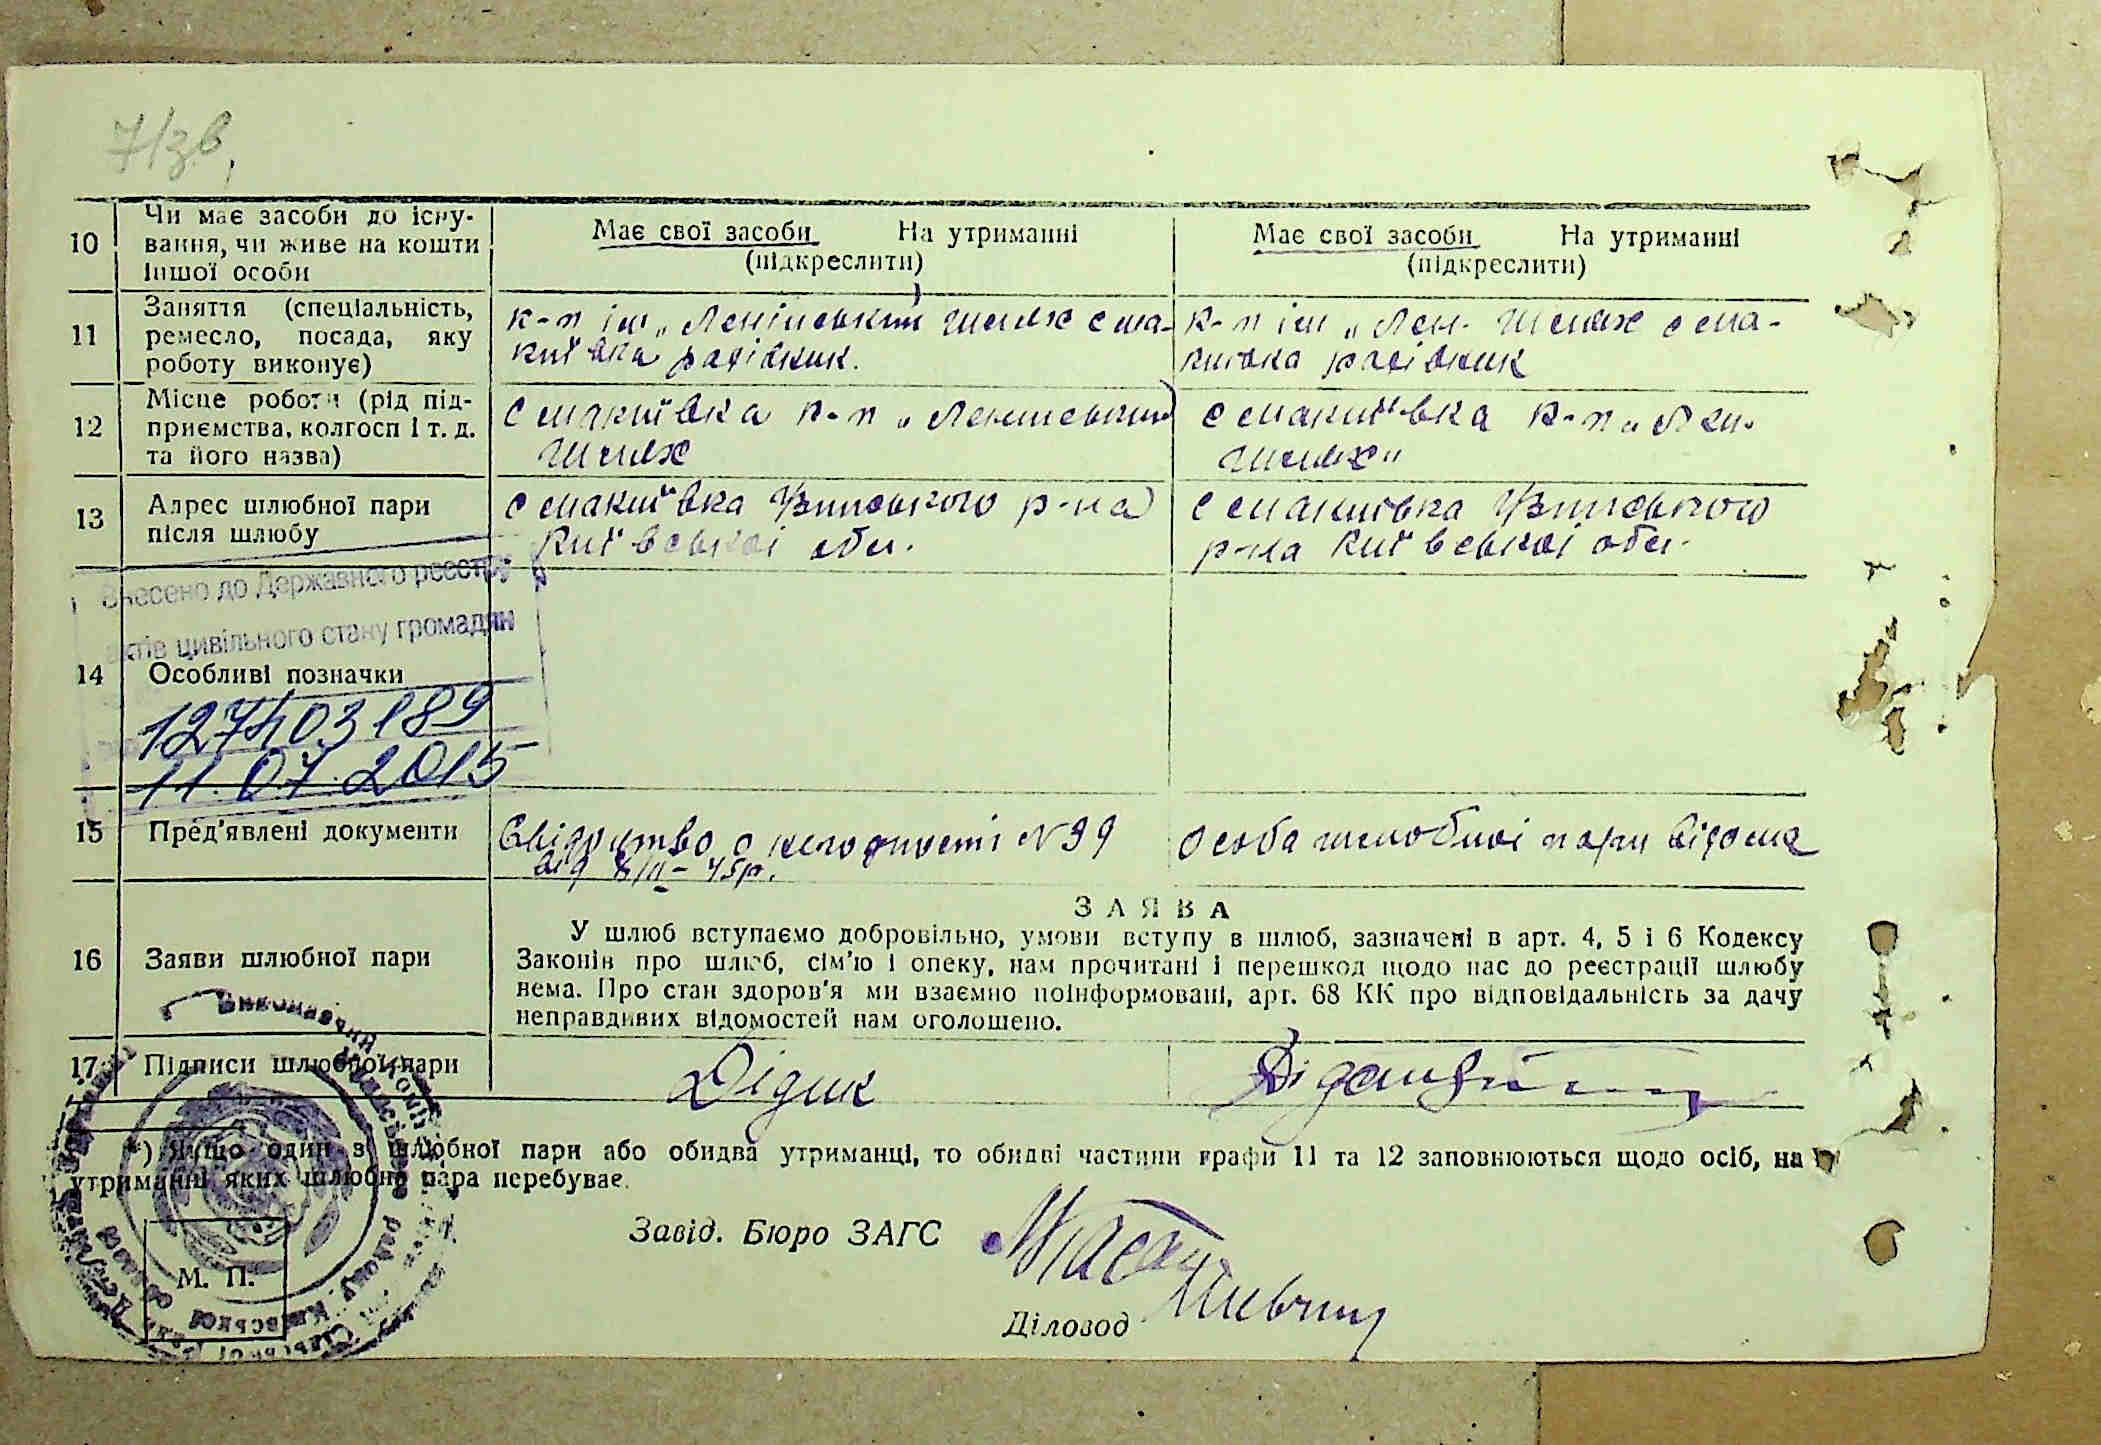 7/зв.
10 Чи має засоби до існу-
вання, чи живе на кошти
іншої особи
Має свої засоби На утриманні
(підкреслити)
Має свої засоби На утриманні
(підкреслити)
11 Заняття (спеціальність,
ремесло, посада, яку
роботу виконує)
к-п ім „Ленінський шлях с ма-
київка рядівник.
к-п ім „Лен. шлях с ма-
київка рядівник
12 Місце роботи (рід під-
приємства, колгосп і т. д.
та його назва)
с макиївка к-п „Ленінський
шлях
с макиївка к-п „Лен.
шлях"
13 Адрес шлюбної пари
після шлюбу
с макиївка р-на
Київської обл.
с макиївка
р-на Київської обл.
Внесено до Державного реєстру
актів цивільного стану громадян
14 Особливі позначки
127403189
11.07.2015
15 Пред'явлені документи
Свідоцтво о негодності N 99
від 8/II-45р.
особа шлюбної пари відома
ЗАЯВА
16 Заяви шлюбної пари
У шлюб вступаємо добровільно, умови вступу в шлюб, зазначені в арт. 4, 5 і 6 Кодексу
Законів про шлюб, сім'ю і опеку, нам прочитані і перешкод щодо нас до реєстрації шлюбу
нема. Про стан здоров'я ми взаємно поінформовані, арт. 68 КК про відповідальність за дачу
неправдивих відомостей нам оголошено.
17 Підписи шлюбної пари
Дідик
*) Якщо один з шлюбної пари або обидва утриманці, то обидві частини графи 11 та 12 заповнюються щодо осіб, на
утриманні яких шлюбна пара перебуває.
Завід. Бюро ЗАГС
Діловод
М. П.